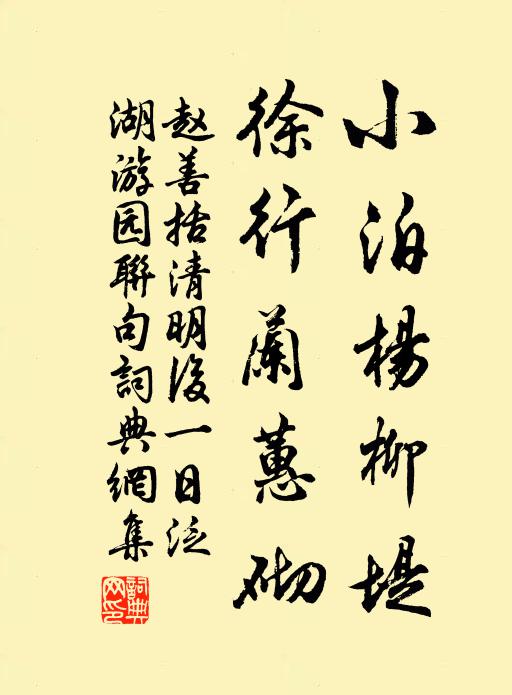 小泊楊柳堤
徐行蘭蕙砌
赵善括清明後一日泛
湖游园聯句詞典網集
詞典
网印